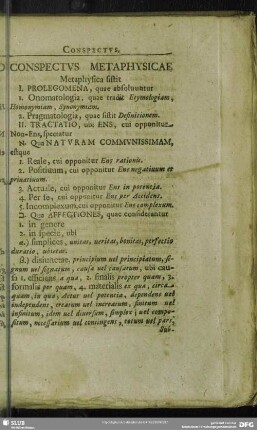 CONSPECTVS.
CONSPECTVS METAPHYSICAE
Metaphysica sistit
I. PROLEGOMENA, quae absoluuntur
1. Onomatologia, quae tradit Etymologiam,
Homonymiam, Synonymiam.
2. Pragmatologia, quae sistit Definitionem.
II. TRACTATIO, ubi ENS, cui opponitur
Non-Ens, spectatur
א. Qua NATVRAM COMMVNISSIMAM,
estque
1. Reale, cui opponitur Ens rationis.
2. Positiuum, cui opponitur Ens negatiuum et
priuatiuum.
3. Actuale, cui opponitur Ens in potentia.
4. Per se, cui opponitur Ens per Accidens.
5. Incomplexum, cui opponitur Ens complexum.
ב. Qua AFFECTIONES, quae considerantur
1. in genere
2. in specie, ubi
α.) simplices, unitas, ueritas, bonitas, perfectio
duratio, ubietas.
β.) disiunctae, principium uel principiatum, si-
gnum uel signatum, causa uel causatum, ubi cau-
sa 1. efficiens a qua, 2. finalis propter quam, 3.
formalis per quam, 4. materialis ex qua, circa
quam, in qua, Actus uel potentia, dependens uel
independens, creatum uel increatum, finitum uel
infinitum, idem uel diuersum, simplex, uel compo-
situm, necessarium uel contingens, totum uel pars,
Sub-
SLUB
DFG